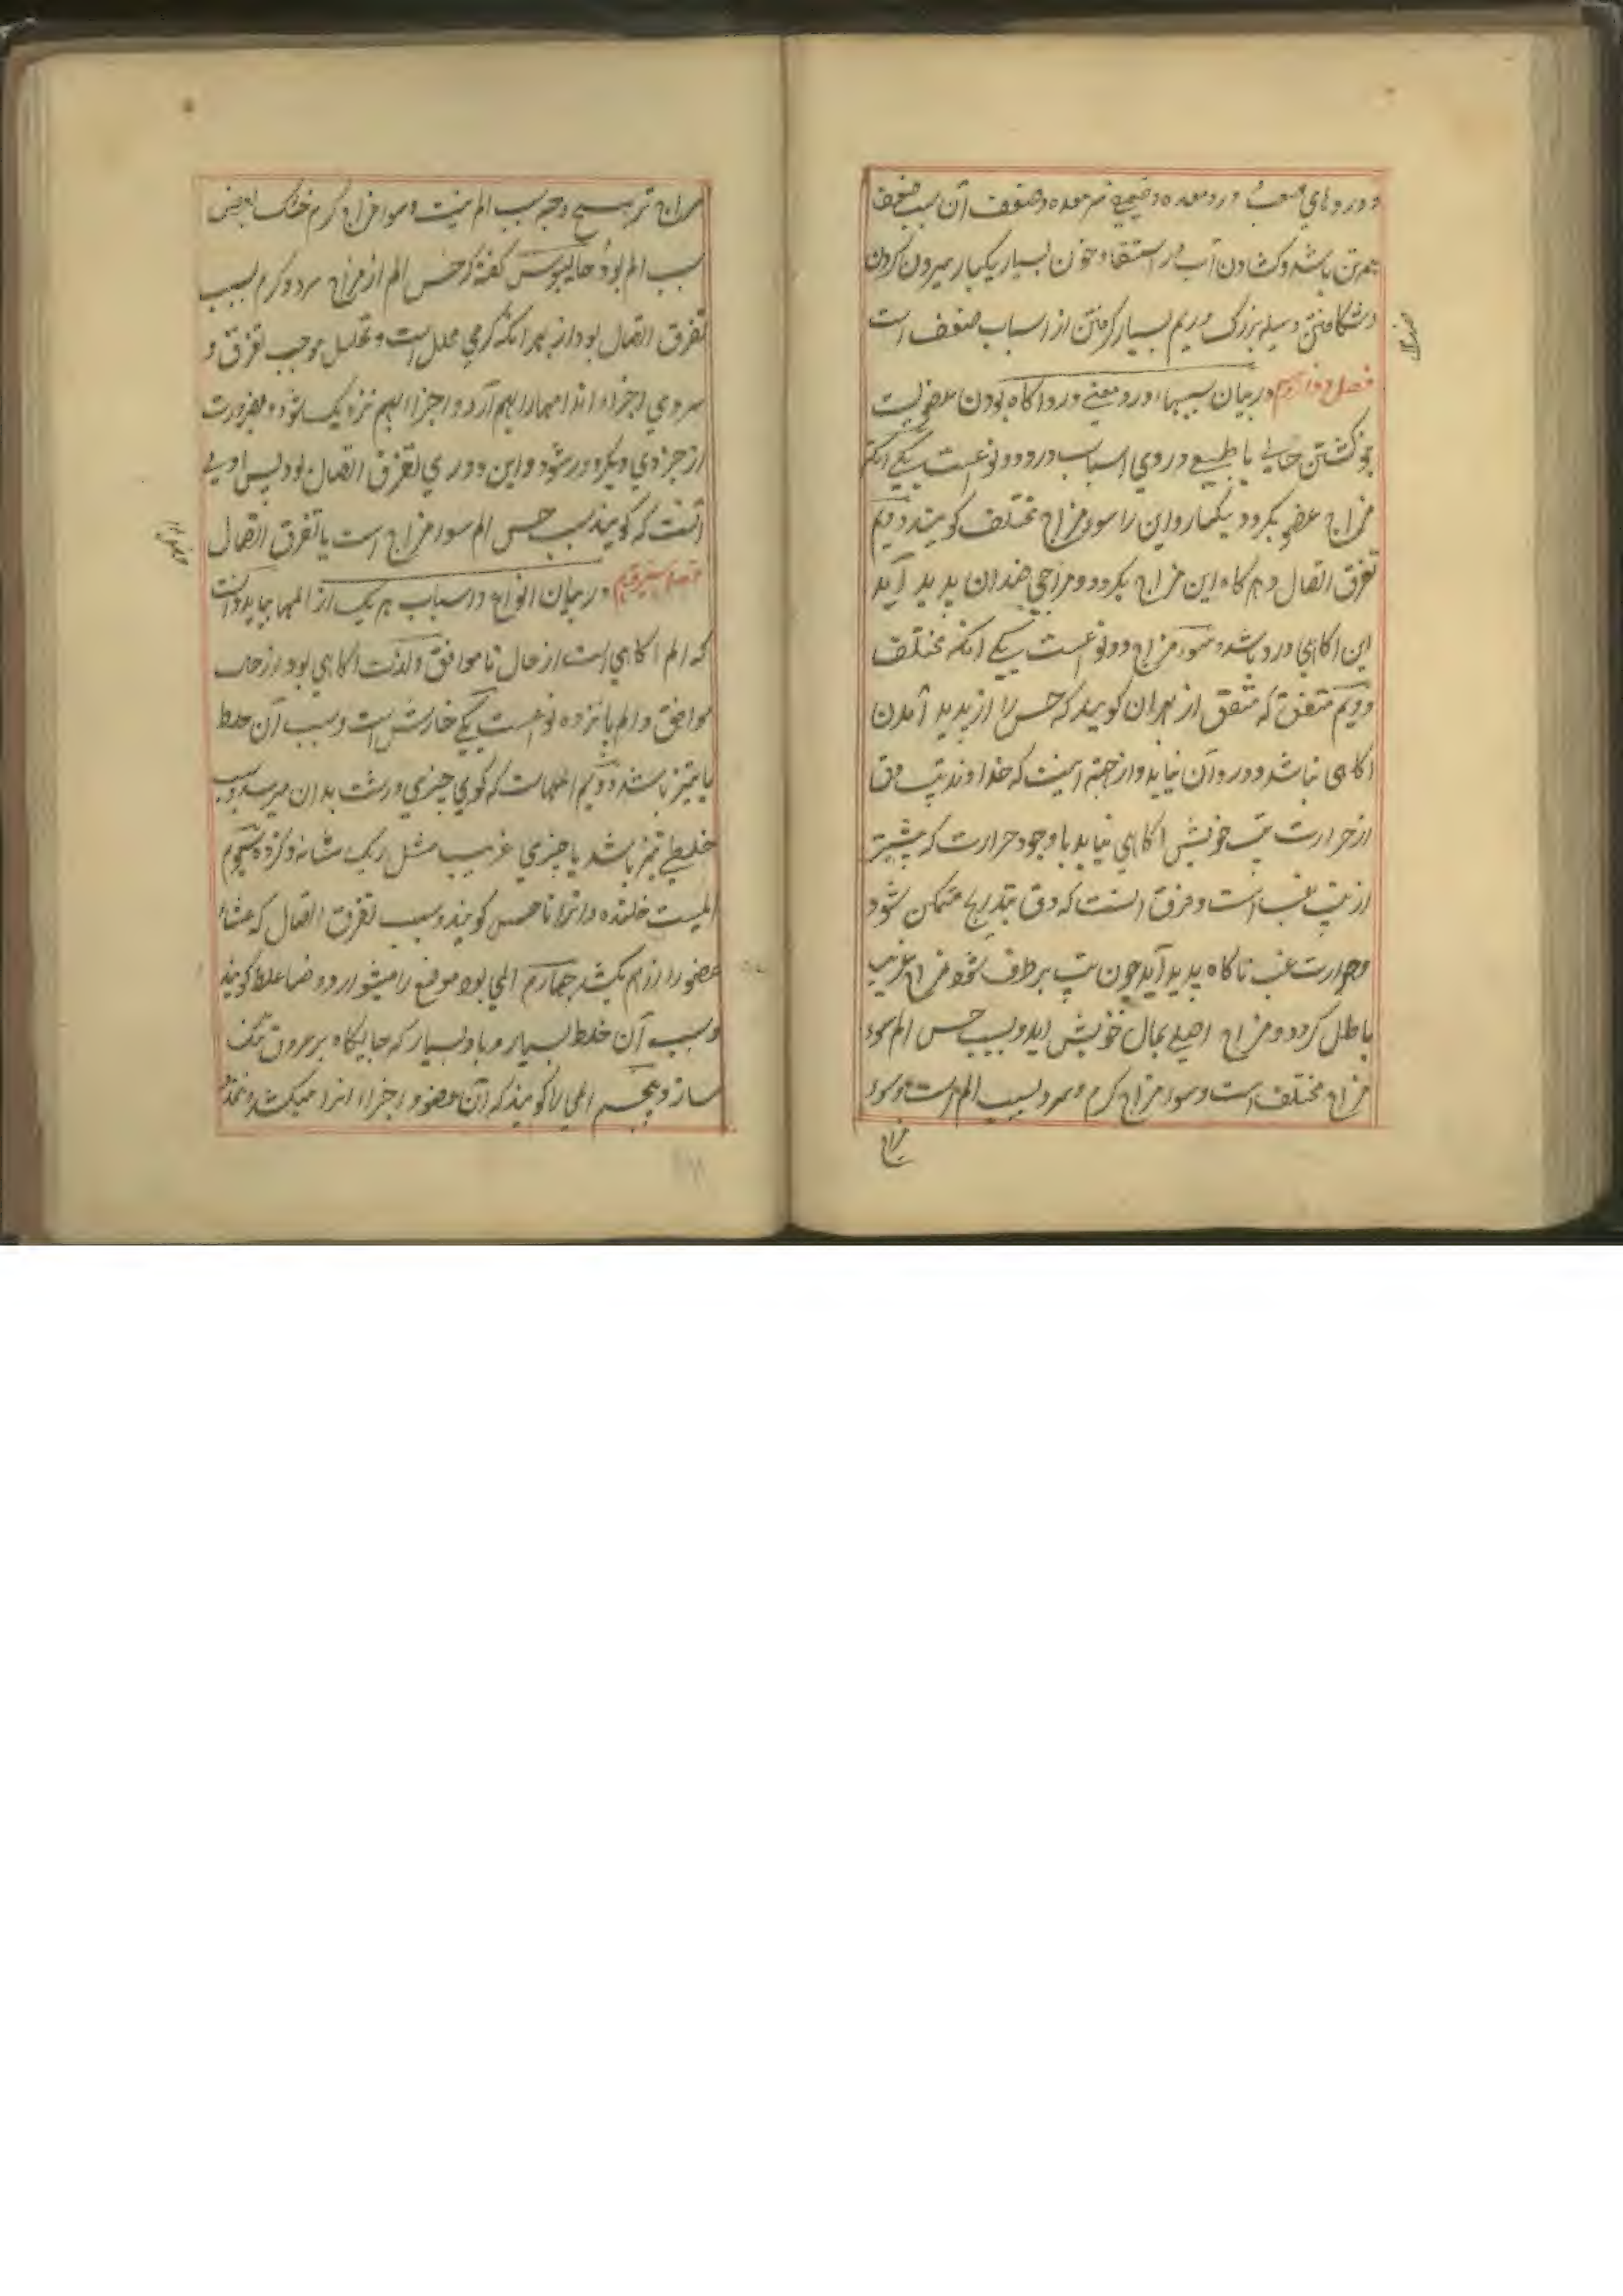 و دردهای صعب و درد معده و خاصه فم معده و ضعف آن سبب ضعف
همه تن باشد و کشادن آب در استسقا و خون بسیار بیکبار بیرون کردن
و شکافتن دبیله بزرک و ریم بسیار کرفتن از اسباب ضعف است
فصل دوازدهم در بیان سببهاء درد و معنی درد آکاه بودن عضویست
از کشتن حالی نا طبیعی در وی اسباب درد دو نوعست یکی آنکه
مزاج عضو بکردد بیکبار و این را سوء مزاج مختلف کویند دویم
تفرق اتصال و هر کاه این مزاج بکردد و مزاجی ضد آن پدید آید
این آکاهی درد باشد و سوء مزاج دو نوعست یکی آنکه مختلف
دویم متفق که متفق از بهر آن کویند که حس را از پدید آمدن
آکاهی نباشد و درد آن نیابد و از جهة اینست که خداوند تب دق
از حرارت تب خویش آکاهی نیابد با وجود حرارت که بیشتر
از تب غب است و فرق آنست که دق بتدریج متمکن شود
و حرارت غب ناکاه پدید آید چون تب برطرف شود مزاج غریب
باطل کردد و مزاج اصلی بحال خویش آید و سبب حس الم سوء
مزاج مختلف است و سوء مزاج کرم و سرد سبب الم است و سوء
مزاج
مزاج تر بهیچ وجه سبب الم نیست و سوء مزاج کرم خشک بعضی
سبب الم بود جالینوس کفته که حس الم از مزاج سرد و کرم بسبب
تفرق اتصال بود از بهر آنکه کرمی محلل است و تحلیل موجب تفرق و
سردی اجزاء اندامها را بهم آرد و اجزا بهم نزدیک شود و بضرورت
از جزوی دیکر دور شود و این دوری تفرق اتصال بود پس اولی
آنست که کویند سبب حس الم سوء مزاج است یا تفرق اتصال
فصل سیزدهم در بیان انواع و اسباب هر یک از المها بباید دانست
که الم آکاهی است از حال نا موافق و لذت آکاهی بود از حال
موافق و الم پانزده نوعست یکی خارش است و سبب آن خلط
یا تیز باشد دویم المهاست که کوی چیزی درشت بدان میرسد و سبب
خلطی تیز باشد یا چیزی غریب مثل ریک مثانه و کرده سیوم
المیست خلنده و آنرا ناخس کویند و سبب تفرق اتصال که غشاء
عضو را از هم بکشد چهارم المی بود موضع را میشورد و ضاغط کویند
و سبب آن خلط بسیار و باد بسیار که جایکاه بر عروق تنک
سازد پنجم المی را کویند که آن عضو و اجزاء آنرا میکشد و تمدد